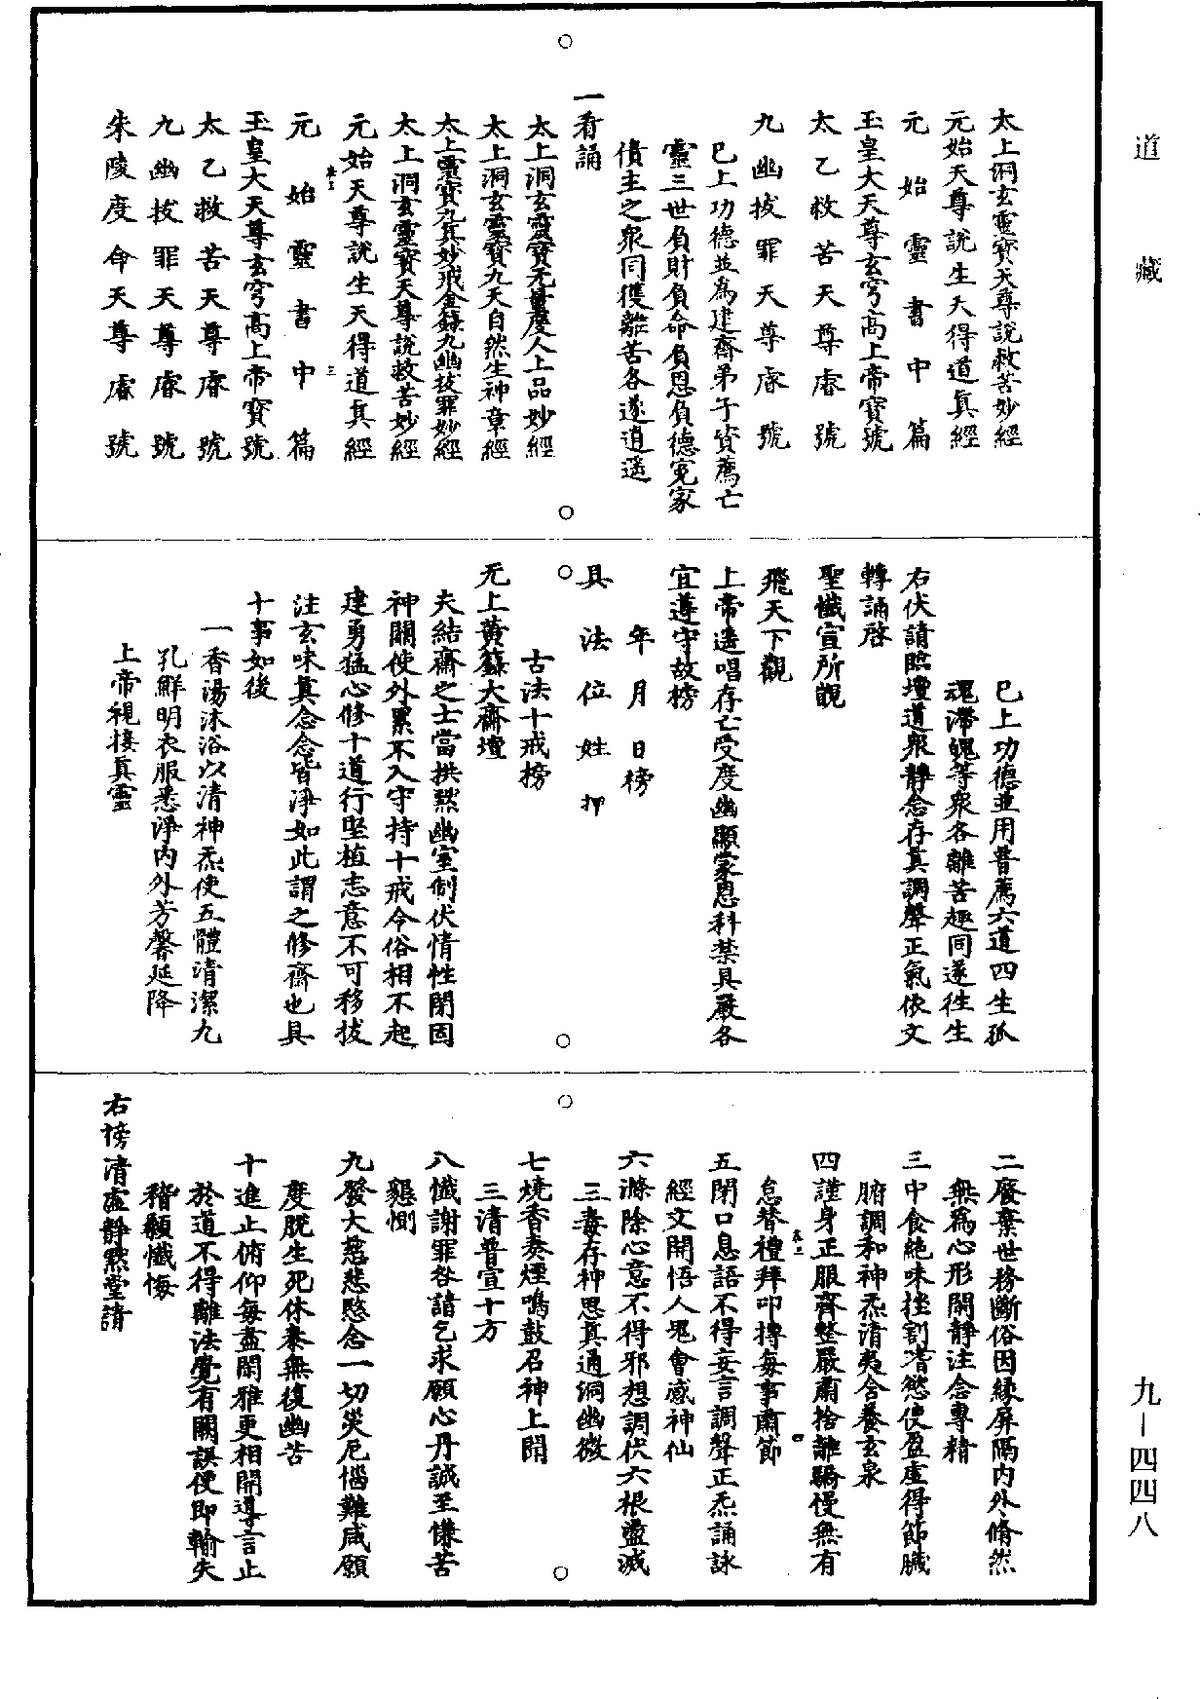 道藏
太上洞玄靈寶天尊說救苦妙經
元始天尊說生天得道真經
元始靈書中篇
玉皇大天尊玄穹高上帝寶號
太乙救苦天尊睿號
九幽拔罪天尊睿號
已上功德並為建齋弟子資薦亡
靈三世負財負命負恩負德冤家
債主之眾同獲離苦各遂逍遥
一看誦
太上洞玄靈寶无量度人上品妙經
太上洞玄靈寶九天自然生神章經
太上靈寶九真妙戒金籙九幽拔罪妙經
太上洞玄靈寶天尊說救苦妙經
元始天尊說生天得道真經
元始靈書中篇
玉皇大天尊玄穹高上帝寶號
太乙救苦天尊睿號
九幽拔罪天尊睿號
朱陵度命天尊睿號
已上功德並用普薦六道四生孤
魂滯魄等眾各離苦趣同遂徃生
右伏請臨壇道眾靜念存真調聲正氣依文
轉誦啓
聖懺宣所覬
飛天下觀
上帝遥唱存亡受度幽顯蒙恩科禁具嚴各
宜遵守故榜
年月日榜
具法位姓押
古法十戒榜
无上黃籙大齋壇
夫結齋之士當拱默幽室制伏情性閉固
神關使外累不入守持十戒令俗相不起
建勇猛心修十道行堅植志意不可移拔
注玄味真念念皆淨如此謂之修齋也具
十事如後
一香湯沐浴以清神炁使五體清潔九
孔鮮明衣服悉淨內外芳馨延降
上帝視接真靈
二廢棄世務斷俗因緣屏隔內外脩然
無為心形閑靜注念專精
三中食絕味挫割嗜慾使盈虛得節臟
腑調和神炁清夷含養玄泉
四謹身正服齊整嚴肅捨離驕慢無有
怠替禮拜叩摶每事肅節
五閉口息語不得妄言調聲正炁誦詠
經文開悟人鬼會感神仙
六滌除心意不得邪想調伏六根盪滅
三毒存神思真通洞幽微
七燒香奏煙鳴鼓召神上聞
三清普宣十方
八懺謝罪咎請乞求願心丹誠至慊苦
懇惻
九發大慈悲愍念一切災厄惱難咸願
度脫生死休泰無復幽苦
十進止俯仰每盡閑雅更相開導言止
於道不得離法覺有闕誤便即輸失
稽顙懺悔
右榜清虛靜默堂請
九一四四八